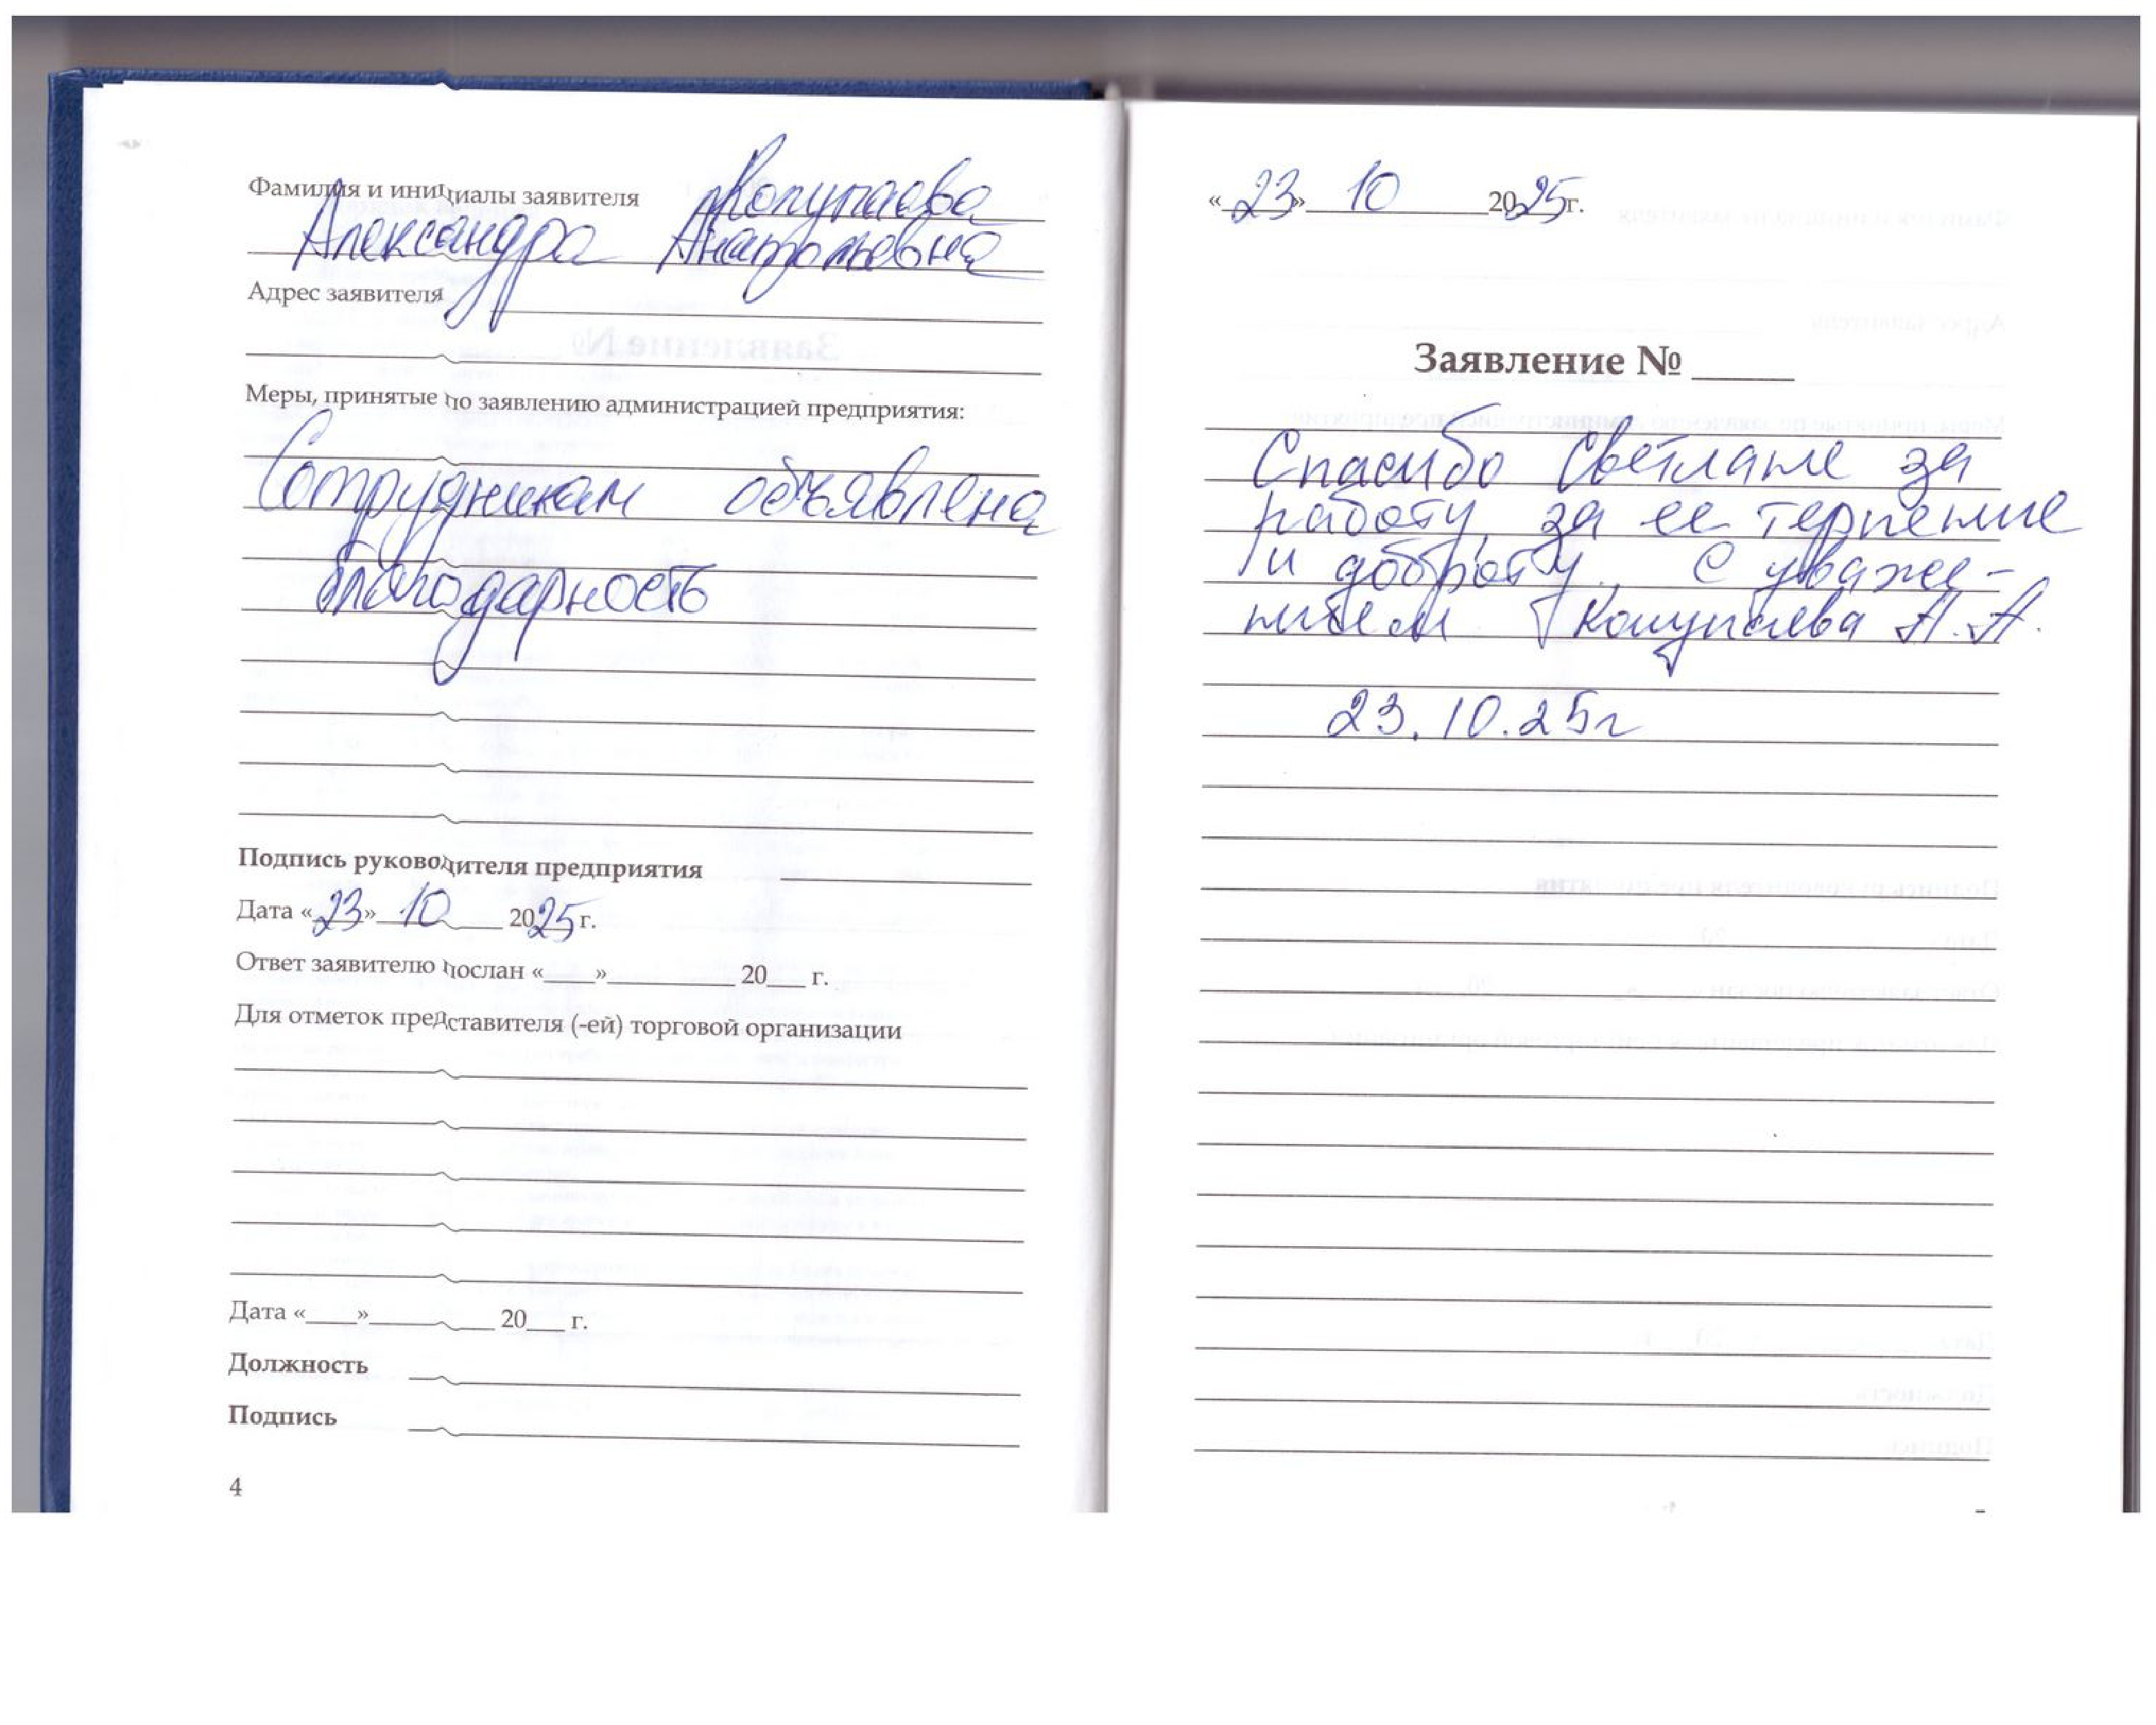 Фамилия и инициалы заявителя Копупаева
Александра Анатольевна
Адрес заявителя
Меры, принятые по заявлению администрацией предприятия:
Сотрудникам объявлена
благодарность
Подпись руководителя предприятия
Дата «23» 10 2025 г.
Ответ заявителю послан «____»__________ 20___ г.
Для отметок представителя (-ей) торговой организации
Дата «____»__________ 20___ г.
Должность
Подпись
4
«23» 10 2025 г.
Заявление № _____
Спасибо Светлане за
работу, за ее терпение
и доброту. С уваже-
нием А.А.
23.10.25г